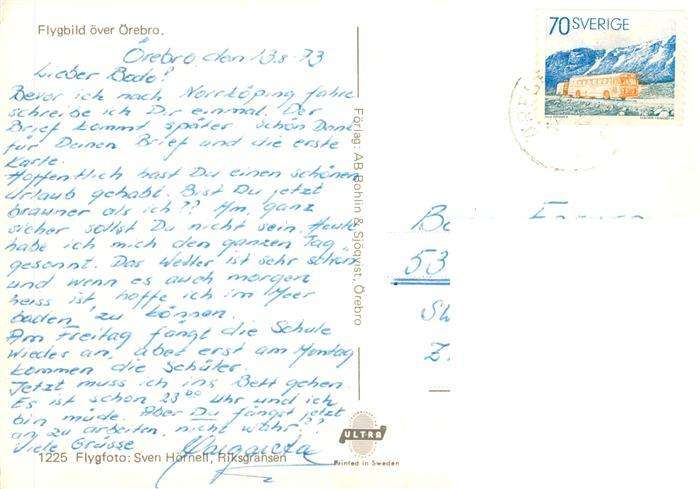 Flygbild över Örebro.
Örebro den 13.8 -73
Lieber Bodo!
Bevor ich nach Norrköping fahre
schreibe ich Dir einmal. Der
Brief kommt später. Schön Dank
für Deinen Brief und die erste
Karte.
Hoffentlich hast Du einen schönen
Urlaub gehabt. Bist Du jetzt
brauner als ich?? Hm, ganz
sicher sollst Du nicht sein. Heute
habe ich mich den ganzen Tag
gesonnt. Das Wetter ist sehr schön
und wenn es auch morgen
heiss ist hoffe ich im Meer
baden zu können.
Am Freitag fängt die Schule
wieder an, aber erst am Montag
kommen die Schüler.
Jetzt muss ich ins Bett gehen.
Es ist schon 23⁰⁰ Uhr und ich
bin müde. Aber Du fängst jetzt
an zu arbeiten, nicht wahr?!
Viele Grüsse
1225 Flygfoto: Sven Hörnell, Riksgränsen
Förlag: AB Bohlin & Sjöqvist, Örebro
ULTRA
Printed in Sweden
70 SVERIGE
53